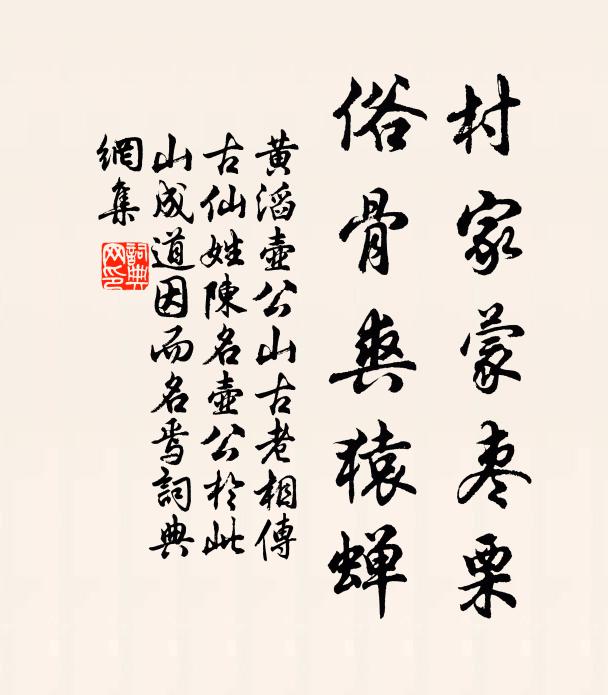 村家蒙枣栗
俗骨爽猿蝉
黄滔壶公山古老相傳
古仙姓陳名壶公於此
山成道因而名焉詞典
網集
詞典
网印